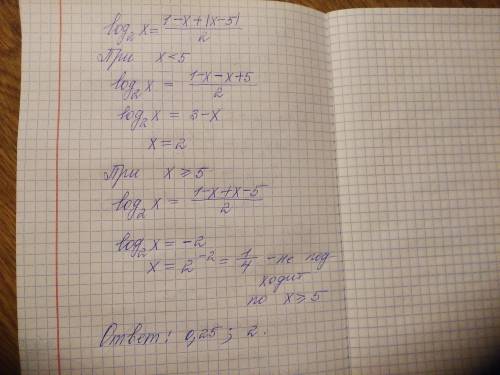 log₂x = (1-x+|x-5|)/2
При x<5
log₂x = (1-x-x+5)/2
log₂x = 3-x
x = 2
При x ≥ 5
log₂x = (1-x+x-5)/2
log₂x = -2
x = 2⁻² = 1/4 - не под-
ходит
по x ≥ 5
Ответ: 0,25; 2.